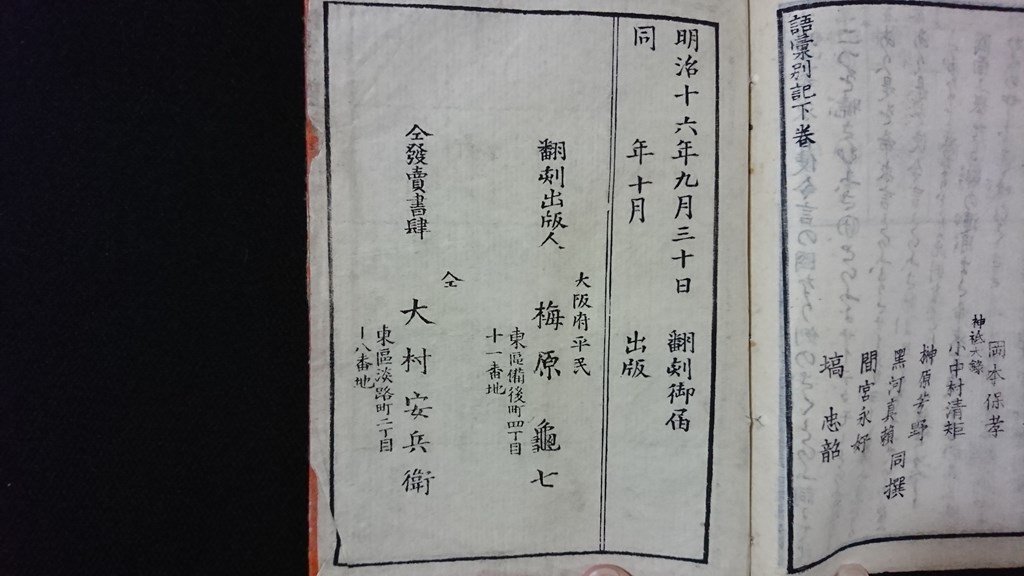 岡本保孝
小中村清矩
榊原芳野
黒河真頼 同撰
間宮永好
塙 忠韶
語彙別記下巻
明治十六年九月三十日 翻刻御届
同 年十月 出版
翻刻出版人
大阪府平民
梅原龜七
東區備後町四丁目
十一番地
仝發賣書肆
仝
大村安兵衛
東區淡路町二丁目
十八番地